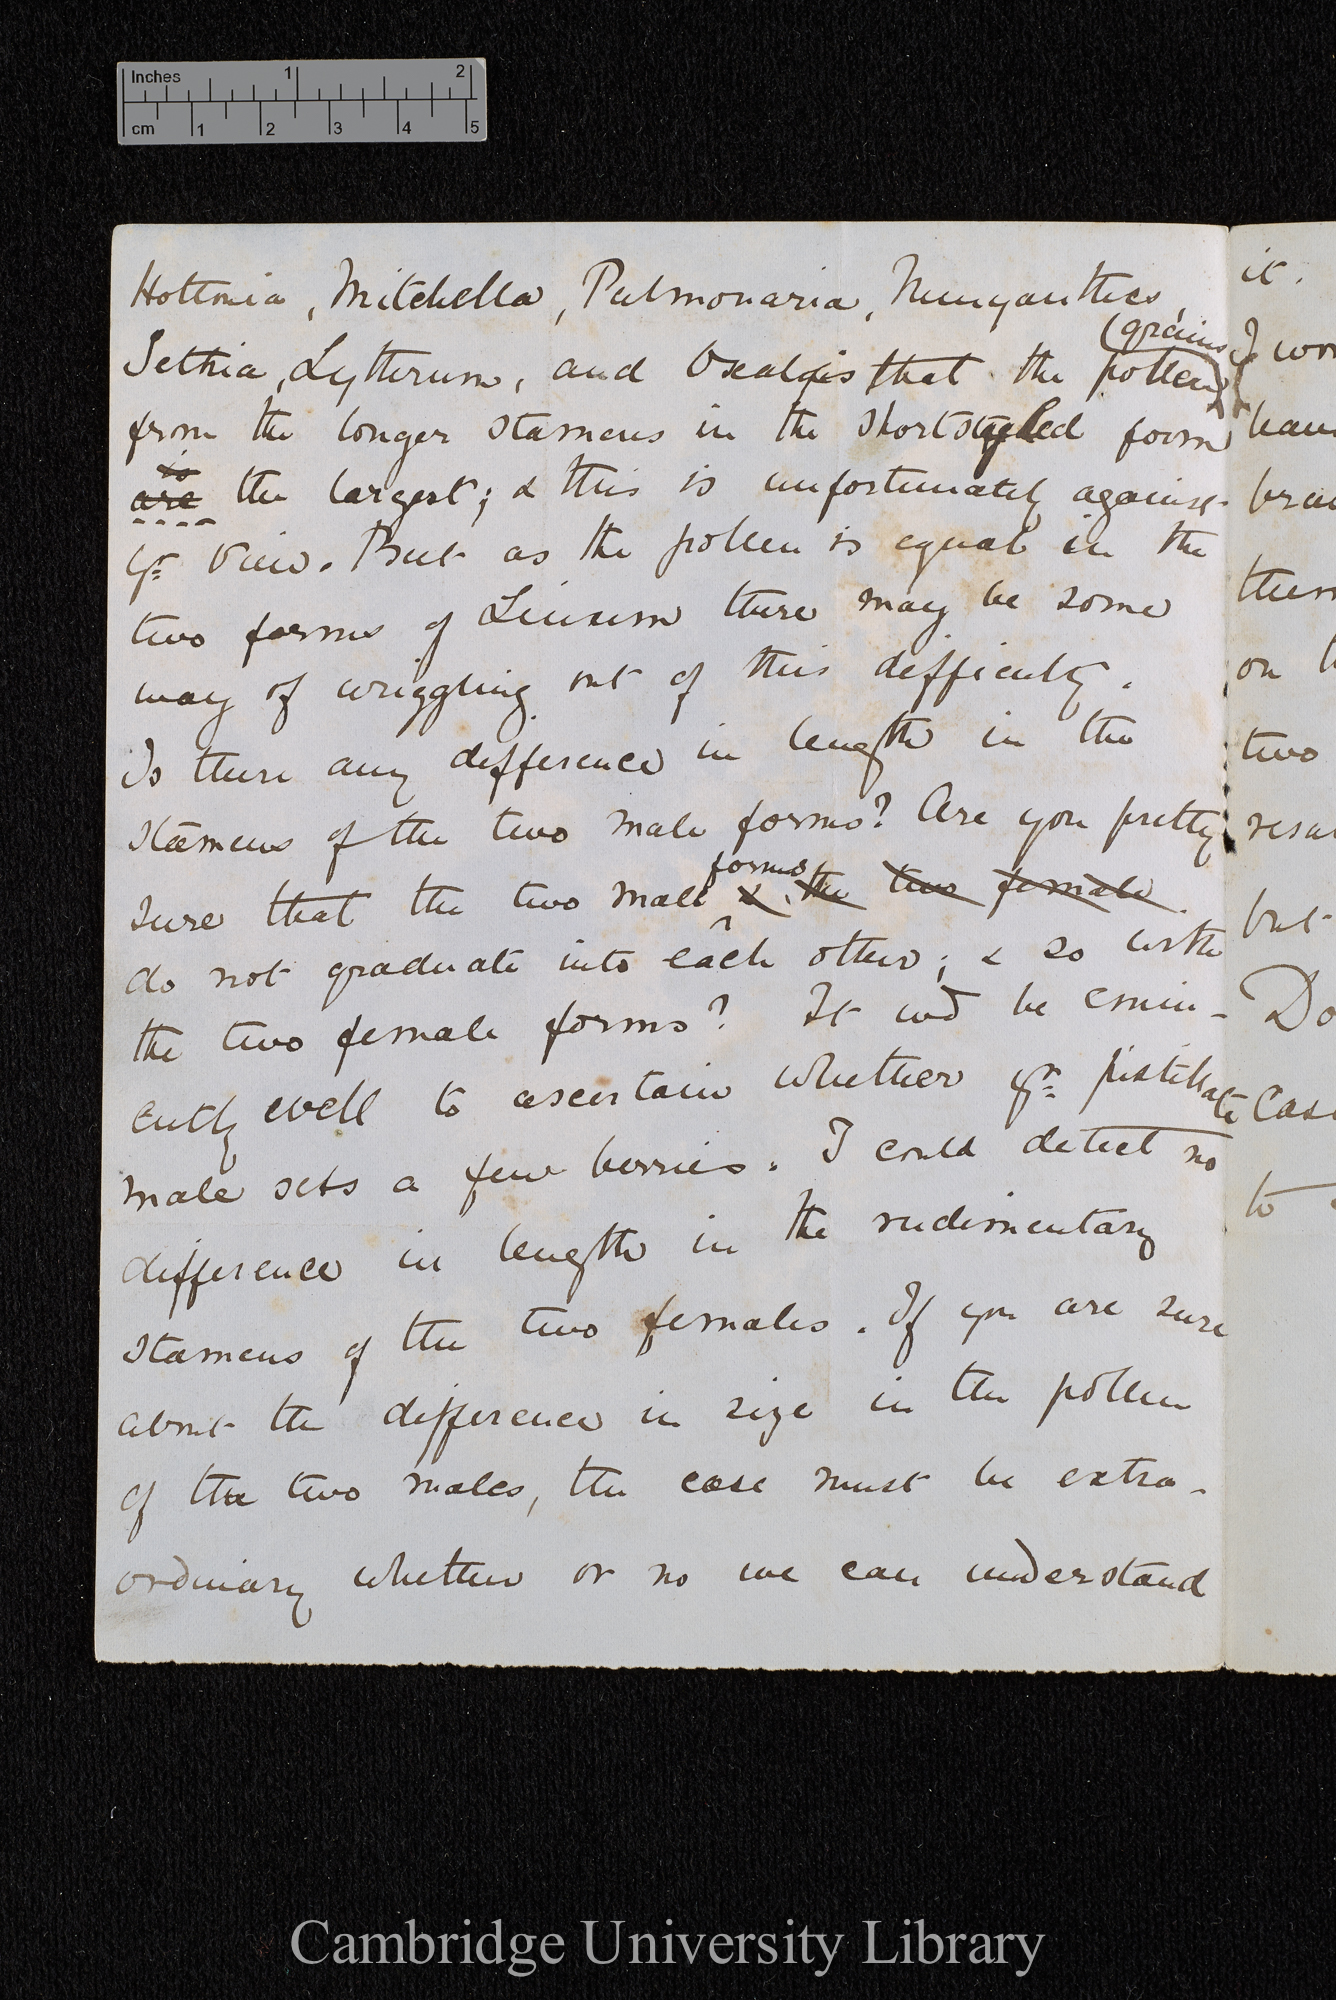 Inches 1 2
cm 1 2 3 4 5
Hottonia, Mitchella, Pulmonaria, Menyanthes,
Sethia, Lythrum, and Oxalis that the pollen (grains)
from the longer stamens in the shortstyled form
is
are the largest; & this is unfortunately against
yr view. But as the pollen is equal in the
two forms of Linum there may be some
way of wriggling out of this difficulty.
Is there any difference in length in the
stamens of the two male forms? Are you pretty
sure that the two male forms & the two female
do not graduate into each other; & so with
the two female forms? It wd be emin-
ently well to ascertain whether yr pistillate
male sets a few berries. I could detect no
difference in length in the rudimentary
stamens of the two females. If you are sure
about the difference in size in the pollen
of the two males, the case must be extra-
ordinary whether or no we can understand
it.
I wo
hav
bra
them
on
two
resu
but
Do
case
to
Cambridge University Library